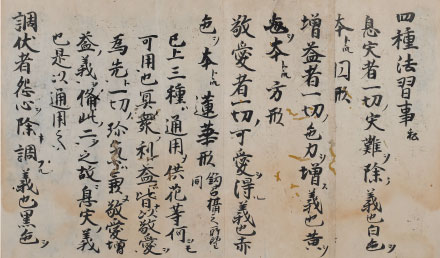 四種法習事
息災者一切災難除義也白色
本ト云円形
増益者一切色力増義也黄
色本ト云方形
敬愛者一切可愛得義也赤
色本ト云蓮華形
已上三種通用供花等何
可用也冥衆利益皆以敬愛
為先一切
敬愛増
益義備此二之故息災義
也是以通用之
調伏者怨心除調義也黒色